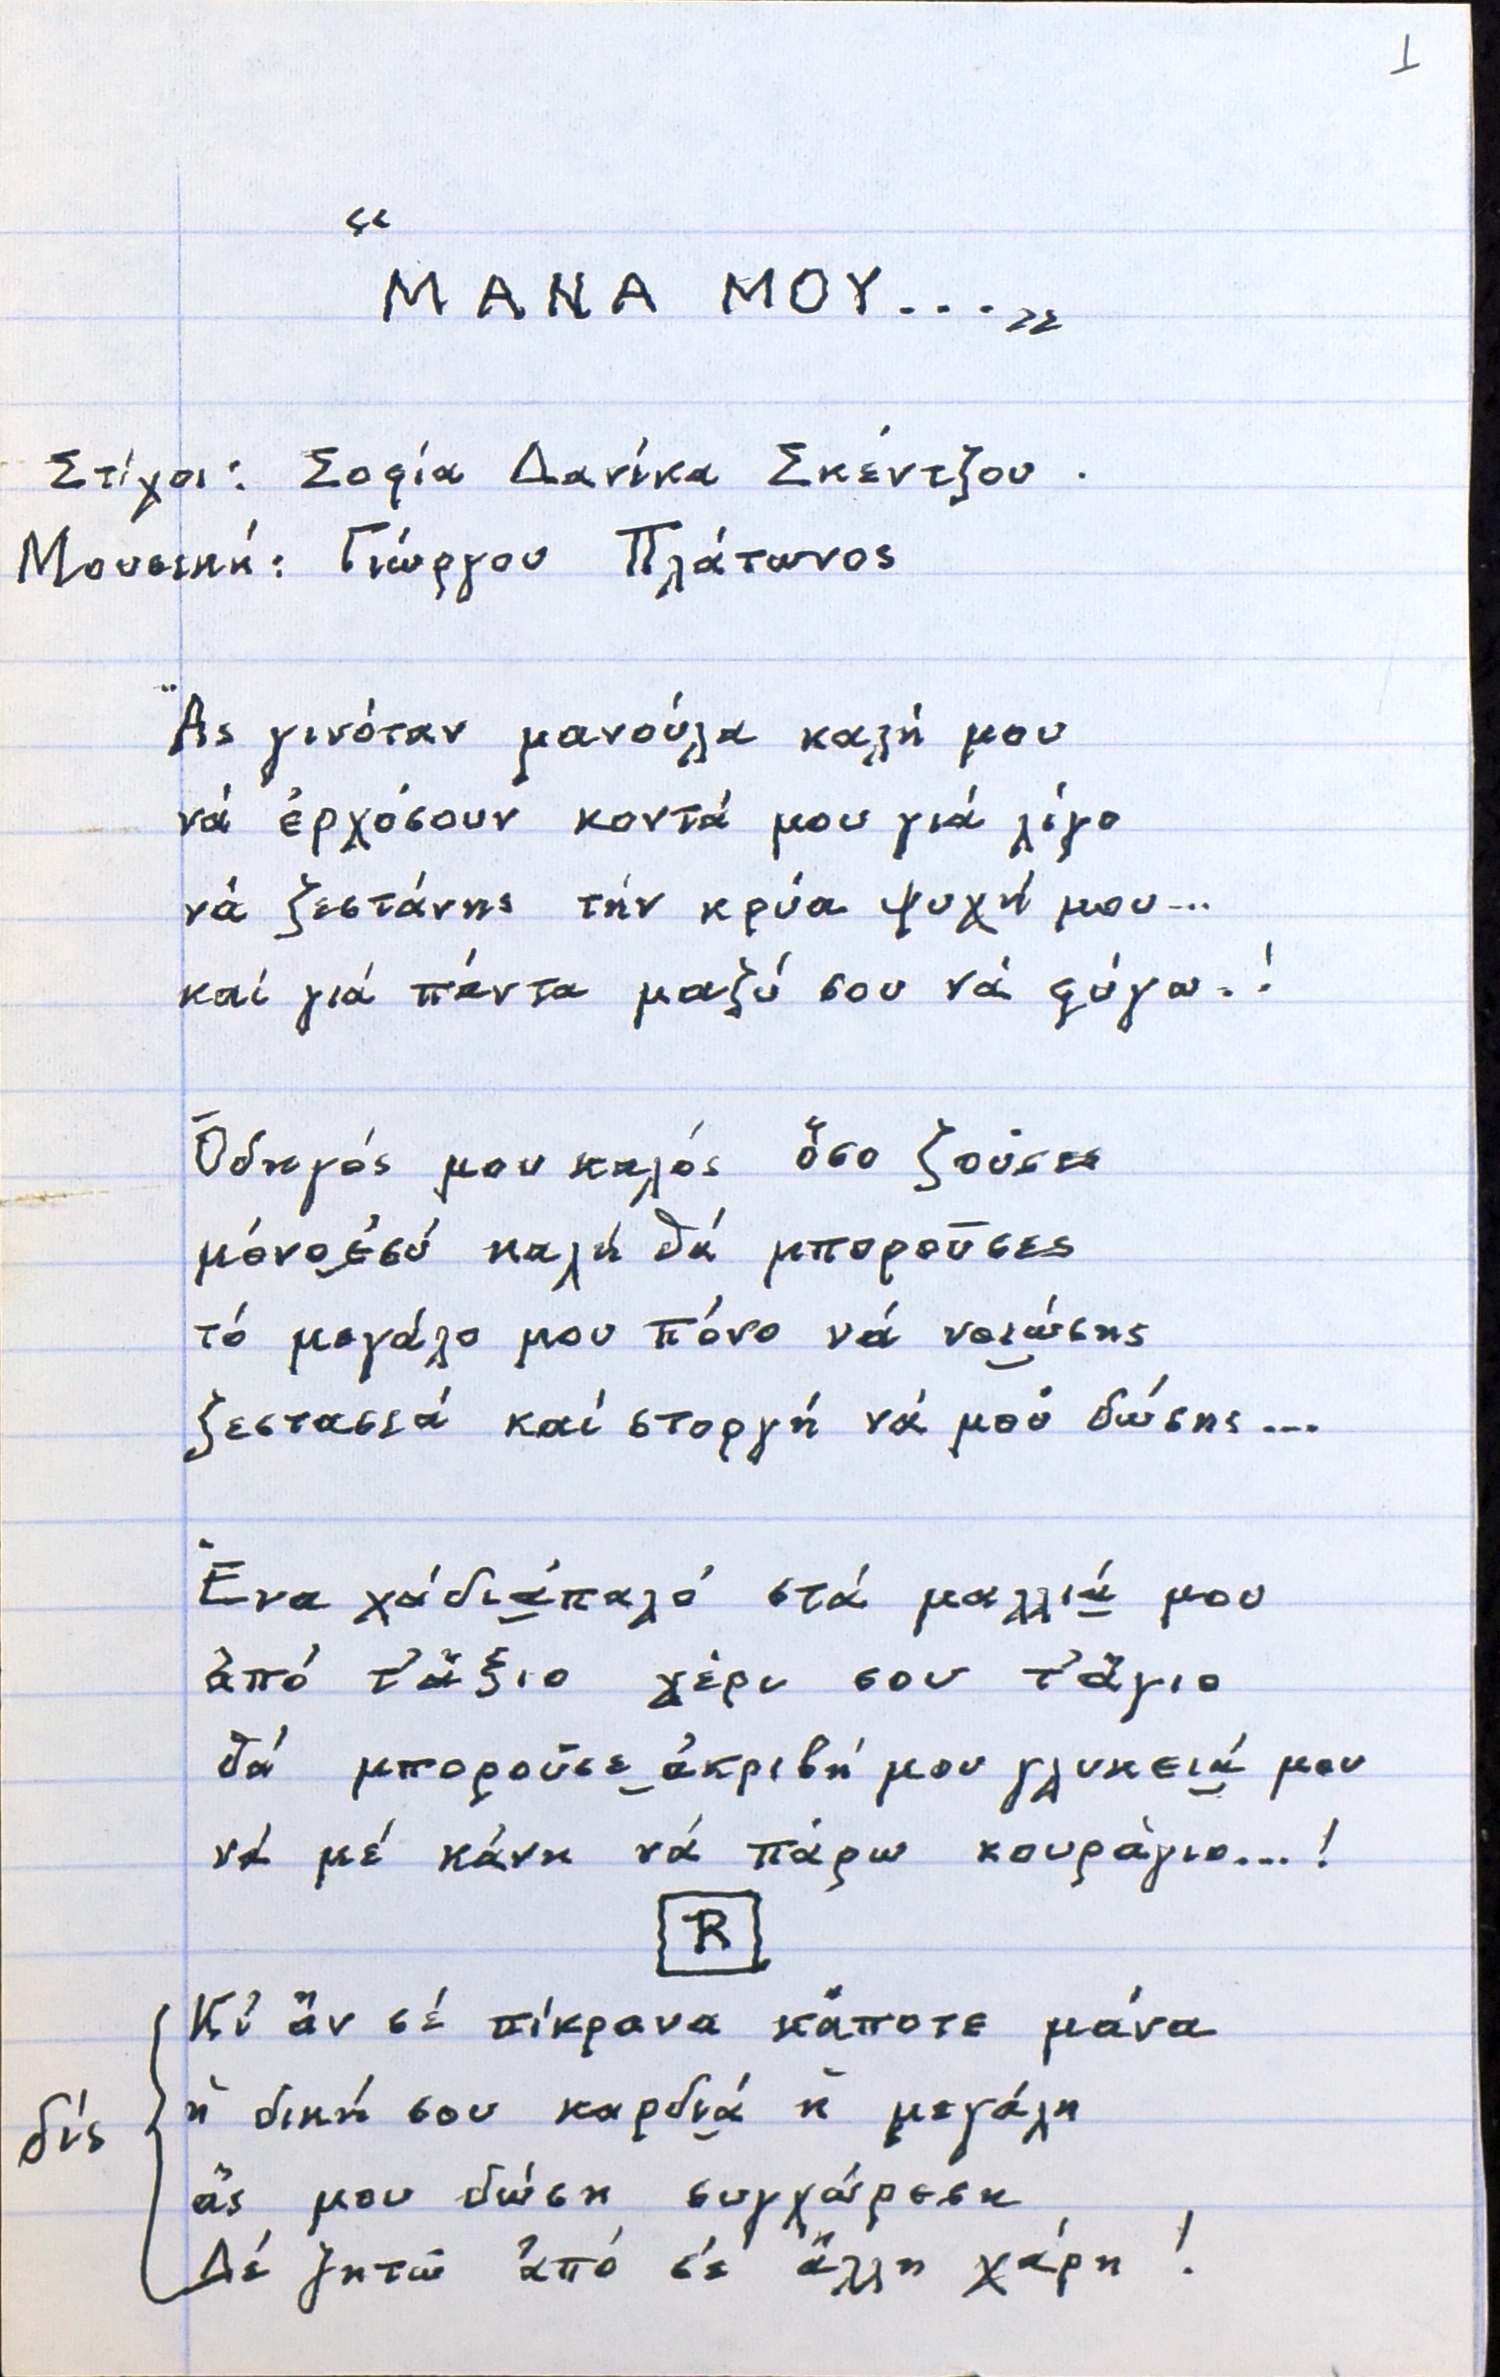 1
“ΜΑΝΑ ΜΟΥ...„
Στίχοι: Σοφία Δανίκα Σκέντζου.
Μουσική: Γιώργου Πλάτωνος
Ἄς γινόταν μανούλα καλή μου
νά ἐρχόσουν κοντά μου γιά λίγο
νά ζεστάνης τήν κρύα ψυχή μου...
καί γιά πάντα μαζύ σου νά φύγω..!
Ὁδηγός μου καλός ὅσο ζοῦσες
μόνο ἐσύ καλή θά μποροῦσες
τό μεγάλο μου πόνο νά νοιώσης
ζεστασιά καί στοργή νά μοῦ δώσης...
Ἕνα χάδι ἁπαλό στά μαλλιά μου
ἀπό τ' ἄξιο χέρι σου τ' ἅγιο
θά μποροῦσε ἀκριβή μου γλυκειά μου
νά μέ κάνη νά πάρω κουράγιο...!
R
Κι' ἄν σέ πίκρανα κάποτε μάνα
δίς
ἡ δική σου καρδιά ἡ μεγάλη
ἄς μου δώση συγχώρεση
Δέ ζητῶ ἀπό σέ ἄλλη χάρη!